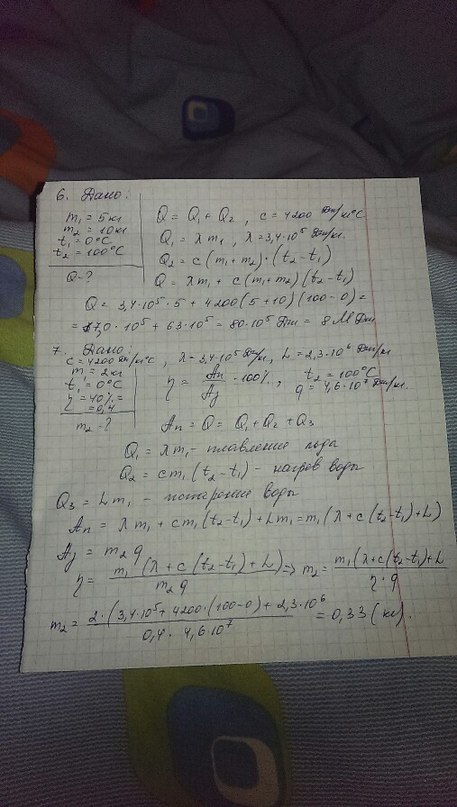 6. Дано:
m₁ = 5 кг
m₂ = 10 кг
t₁ = 0°C
t₂ = 100°C
Q - ?
Q = Q₁ + Q₂, c = 4200 Дж/кг°C
Q₁ = λ m₁, λ = 3,4·10⁵ Дж/кг.
Q₂ = c (m₁ + m₂)·(t₂ - t₁)
Q = λ m₁ + c (m₁ + m₂)(t₂ - t₁)
Q = 3,4·10⁵·5 + 4200(5+10)(100-0) =
= 17,0·10⁵ + 63·10⁵ = 80·10⁵ Дж = 8 МДж
7. Дано:
c = 4200 Дж/кг°C, λ = 3,4·10⁵ Дж/кг, L = 2,3·10⁶ Дж/кг
m = 2 кг
t₁ = 0°C
η = 40% =
= 0,4
m₂ - ?
η = Aп / Aз · 100%, t₂ = 100°C
q = 4,6·10⁷ Дж/кг.
Aп = Q = Q₁ + Q₂ + Q₃
Q₁ = λ m₁ - плавление льда
Q₂ = cm₁ (t₂ - t₁) - нагрев воды
Q₃ = L m₁ - испарение воды
Aп = λ m₁ + cm₁ (t₂ - t₁) + Lm₁ = m₁ (λ + c (t₂ - t₁) + L)
Aз = m₂ q
η = m₁ (λ + c (t₂ - t₁) + L) / m₂ q => m₂ = m₁ (λ + c (t₂ - t₁) + L / η · q
m₂ = 2·(3,4·10⁵ + 4200·(100-0) + 2,3·10⁶ / 0,4·4,6·10⁷ = 0,33 (кг).